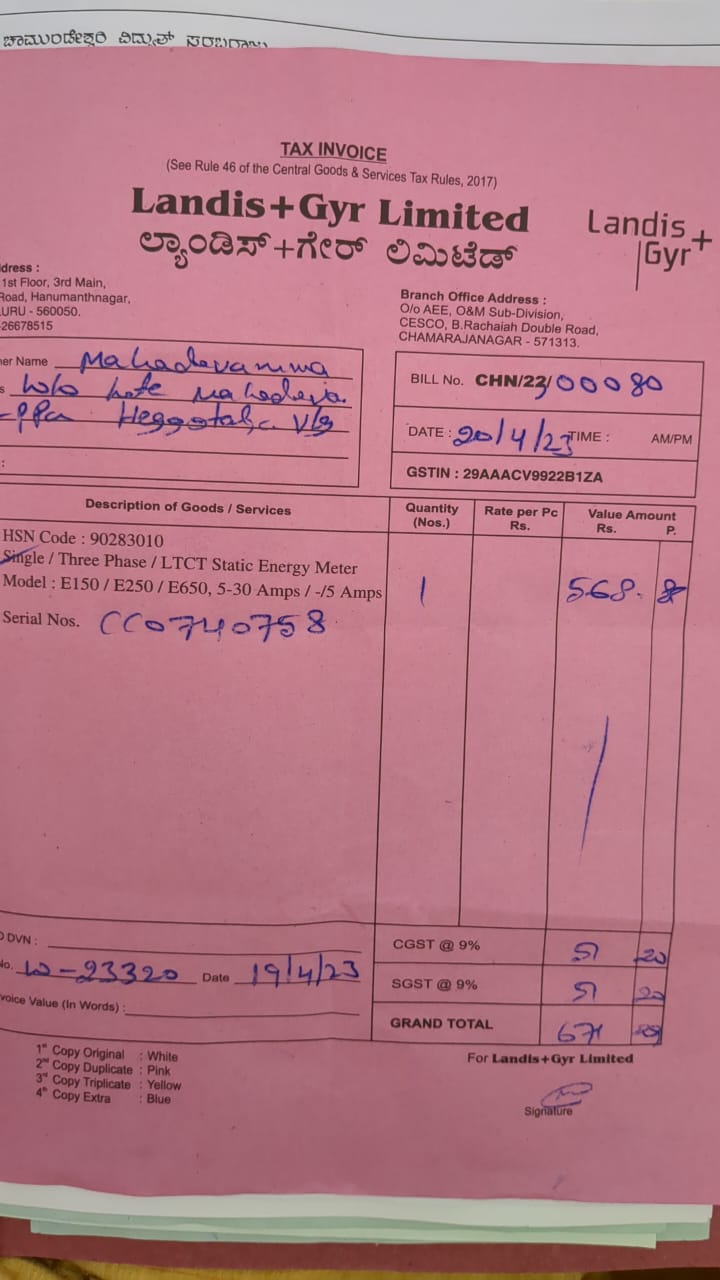 ಚಾಮುಂಡೇಶ್ವರಿ ವಿದ್ಯುತ್ ಸರಬರಾಜು
TAX INVOICE
(See Rule 46 of the Central Goods & Services Tax Rules, 2017)
Landis+Gyr Limited
ಲ್ಯಾಂಡಿಸ್+ಗೇರ್ ಲಿಮಿಟೆಡ್
Landis
Gyr+
dress :
1st Floor, 3rd Main,
Road, Hanumanthnagar,
URU - 560050.
26678515
Branch Office Address :
O/o AEE, O&M Sub-Division,
CESCO, B.Rachaiah Double Road,
CHAMARAJANAGAR - 571313.
er Name Mahadevamma
s w/o late Mahadeva
-ppa Vlg
:
BILL No. CHN/22/00080
DATE : 20/4/23 TIME : AM/PM
GSTIN : 29AAACV9922B1ZA
Description of Goods / Services
Quantity (Nos.)
Rate per Pc Rs.
Value Amount
Rs. P.
HSN Code : 90283010
Single / Three Phase / LTCT Static Energy Meter
Model : E150 / E250 / E650, 5-30 Amps / -/5 Amps 1 568.
Serial Nos. CC0740758
O DVN :
No. 10-93320 Date 19/4/23
voice Value (In Words) :
CGST @ 9% 51 20
SGST @ 9% 51 20
GRAND TOTAL 671
1st Copy Original : White
2nd Copy Duplicate : Pink
3rd Copy Triplicate : Yellow
4th Copy Extra : Blue
For Landis+Gyr Limited
Signature